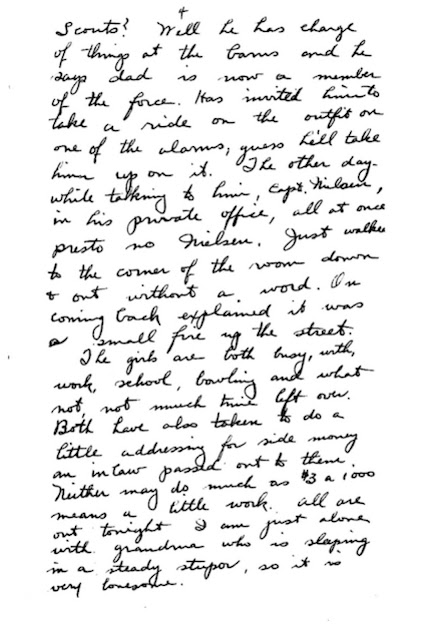 4
Scouts? Well he has charge
of things at the barns and he
says dad is now a member
of the force. Has invited him to
take a ride on the outfit on
one of the alarms, guess he'll take
him up on it. The other day
while talking to him, Capt. Nielsen,
in his private office, all at once
presto no Nielsen. Just walked
to the corner of the room down
& out without a word. On
coming back explained it was
a small fire up the street.
The girls are both busy, with,
work, school, bowling and what
not, not much time left over.
Both have also taken to do a
little addressing for side money
an inlaw passed out to them.
Neither may do much as $3 a 1000
means a little work. All are
out tonight I am just alone
with grandma who is sleeping
in a steady stupor, so it is
very lonesome.